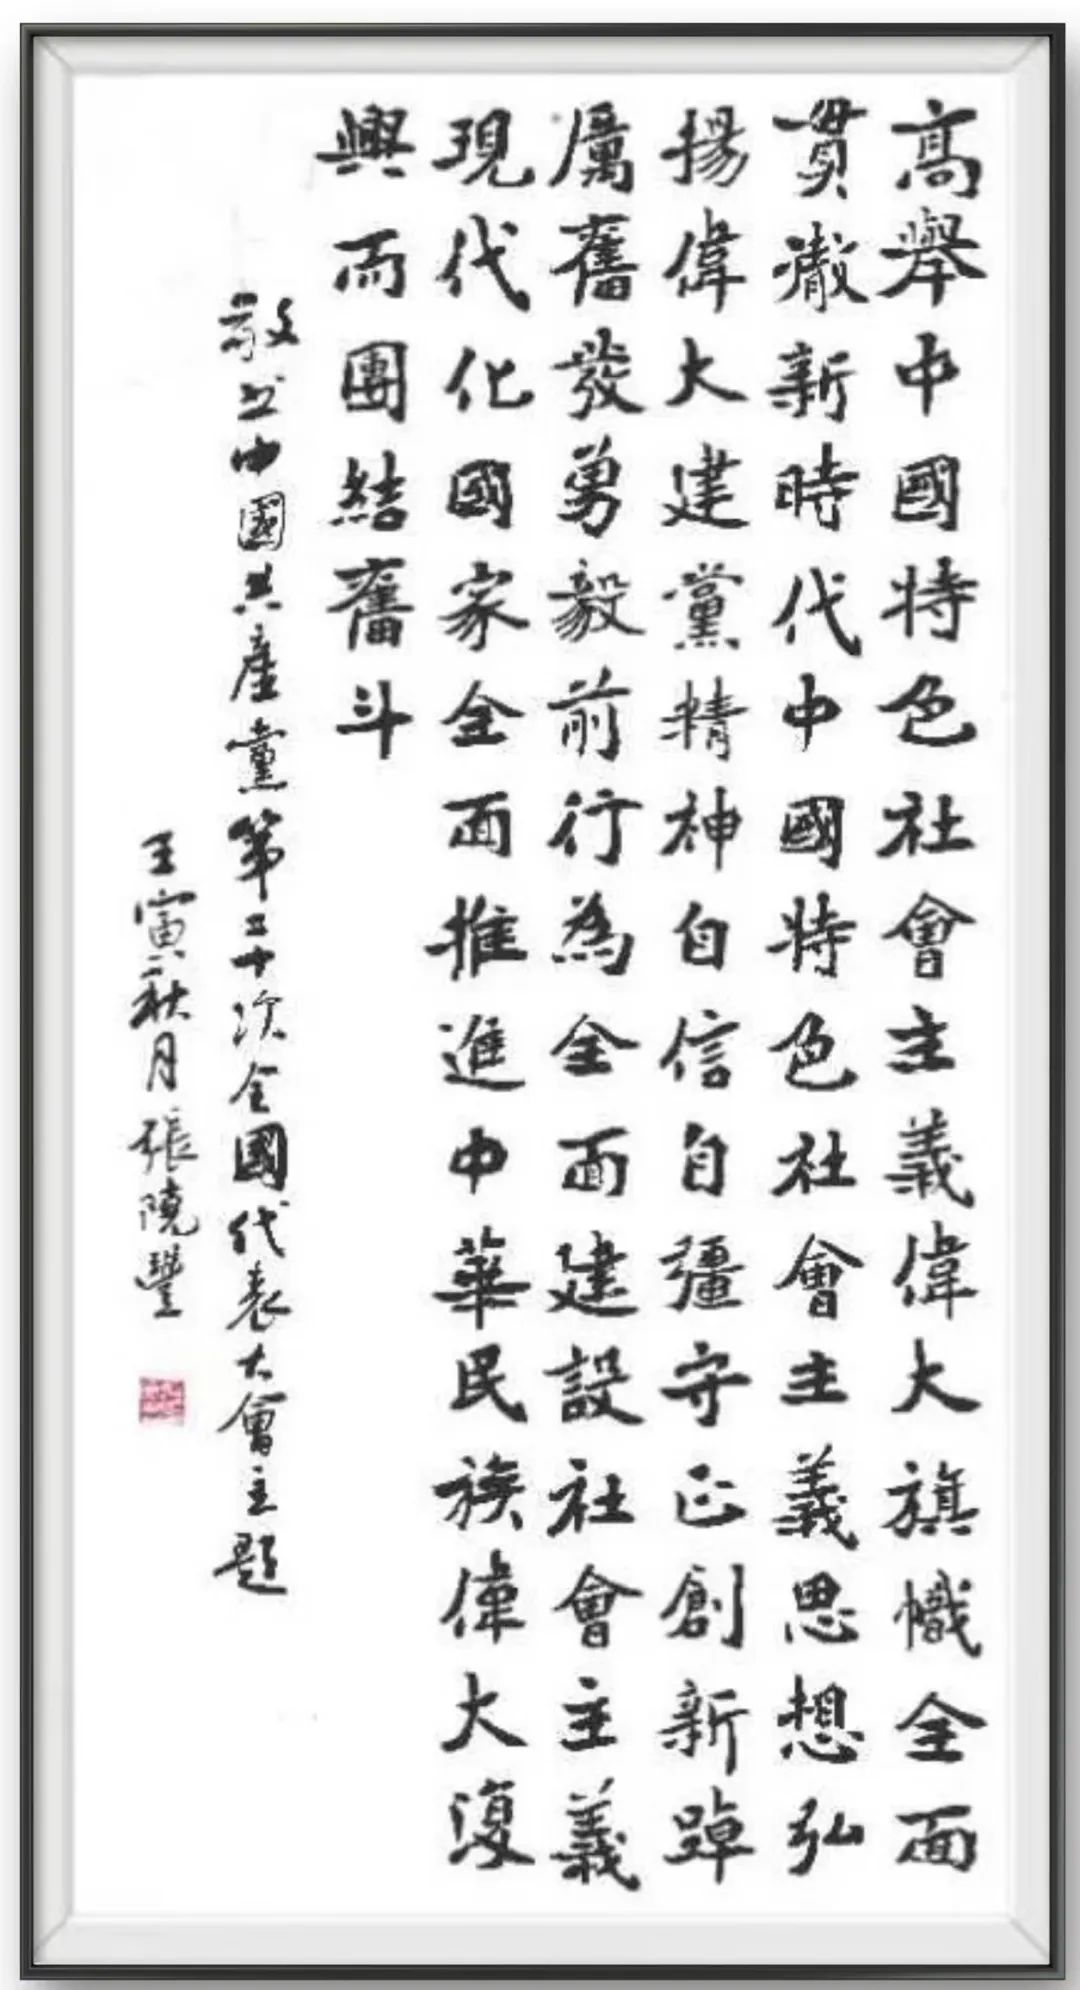 高舉中國特色社會主義偉大旗幟全面
貫澈新時代中國特色社會主義思想弘
揚偉大建黨精神自信自彊守正創新踔
厲奮發勇毅前行為全面建設社會主義
現代化國家全面推進中華民族偉大復
興而團結奮斗
敬书中國共產黨第二十次全國代表大會主題
壬寅秋月張曉豐